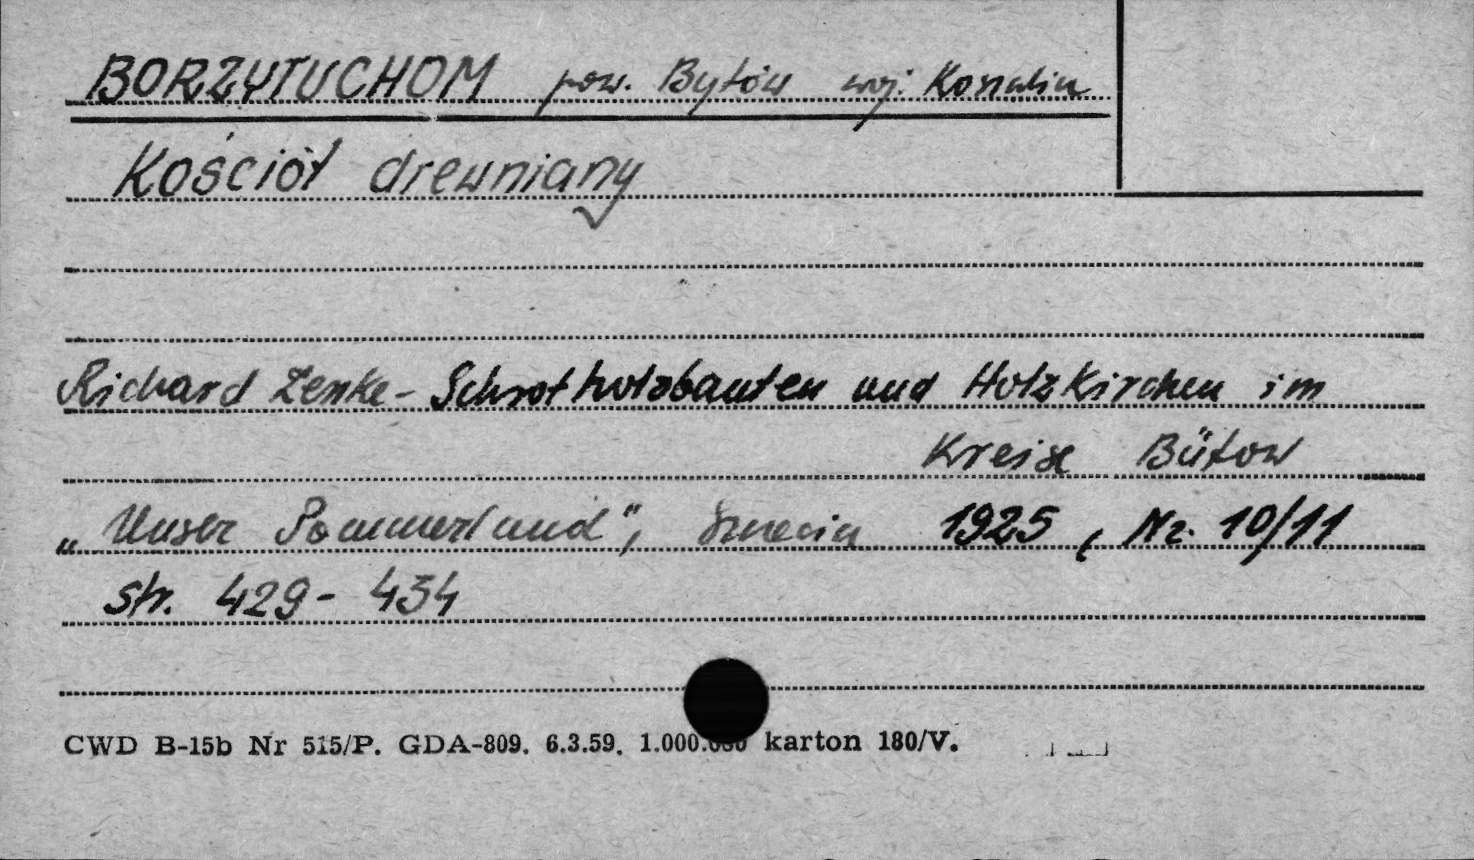 BORZYTUCHOM pow. Bytów woj. Koszalin
Kościół drewniany
Richard Zenke - Schrotholzbauten und Holzkirchen im
Kreise Bütow
„Unser Pommerland", Szczecin 1925, Nr. 10/11
str. 429 - 434
CWD B-15b Nr 515/P. GDA-809. 6.3.59. 1.000.000 karton 180/V.